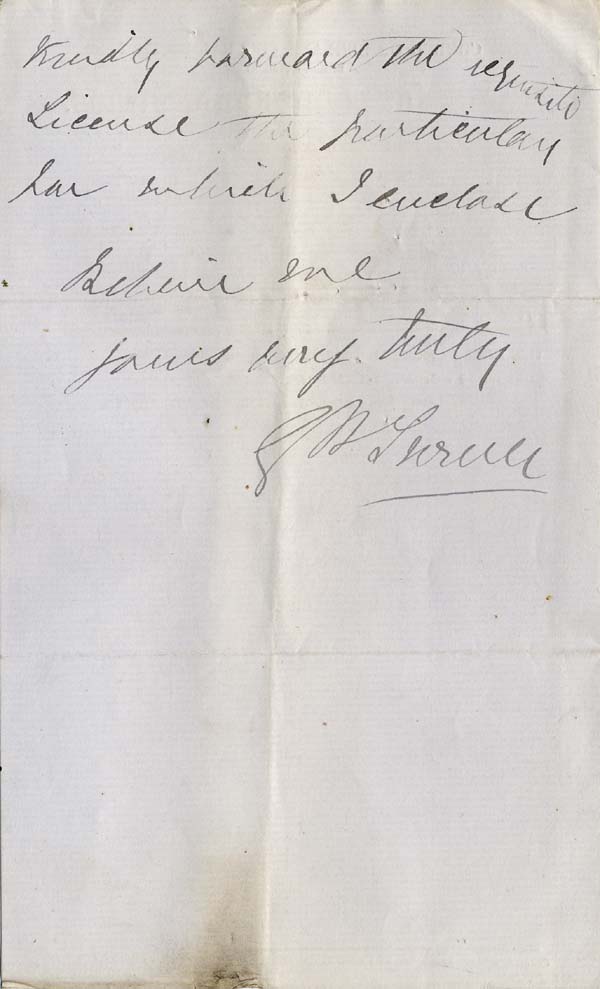 Kindly forward the requisite
License the particulars
for which I enclose
Believe me
yours very truly
G B